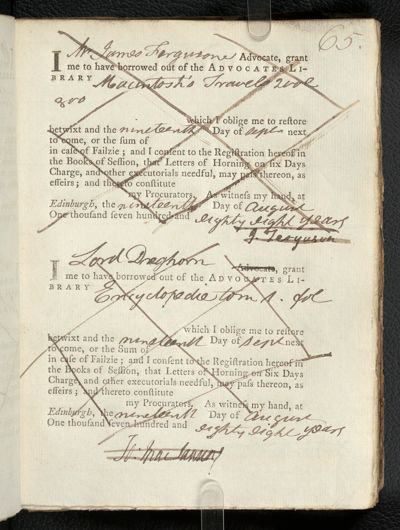 65.
I Mr James Fergusone Advocate, grant
me to have borrowed out of the ADVOCATES LI-
BRARY Macintosh's Travels 2 vol
8vo
which I oblige me to restore
betwixt and the nineteenth Day of Sept next
to come, or the sum of
in case of Failzie; and I consent to the Registration hereof in
the Books of Session, that Letters of Horning on six Days
Charge, and other executorials needful, may pass thereon, as
effeirs; and thereto constitute
my Procurators. As witness my hand, at
Edinburgh, the nineteenth Day of August
One thousand seven hundred and eighty eight years
J. Ferguson
I Lord Dreghorn
Advocate, grant
me to have borrowed out of the ADVOCATES LI-
BRARY Encyclopedie tom 1. fol
which I oblige me to restore
betwixt and the nineteenth Day of Sept next
to come, or the Sum of
in case of Failzie; and I consent to the Registration hereof in
the Books of Session, that Letters of Horning on Six Days
Charge, and other executorials needful, may pass thereon, as
effeirs; and thereto constitute
my Procurators. As witness my hand, at
Edinburgh, the nineteenth Day of August
One thousand seven hundred and eighty eight years